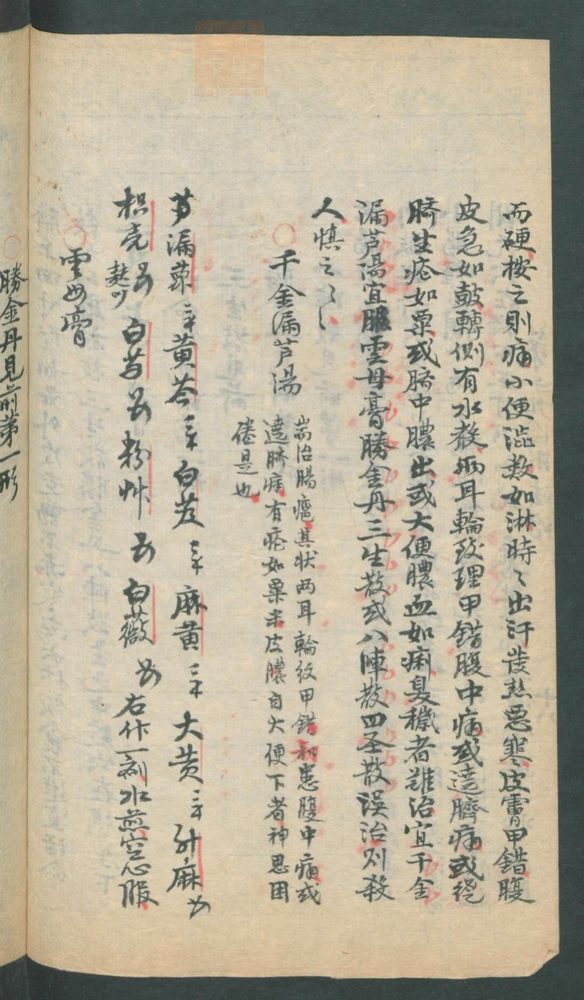 而硬按之則痛小便澁数如淋時〻出汗發熱惡寒皮膚甲錯腹
皮急如鼓轉側有水聲兩耳輪紋理甲錯腹中痛或遶臍痛或繞
臍生瘡如粟或臍中膿出或大便膿血如痢臭穢者難治宜千金
漏芦湯宜服雲母膏勝金丹三生散或八陣散四圣散误治则殺
人慎之〻
○千金漏芦湯
耑治腸癰其狀两耳輪紋甲錯初患腹中痛或
遶臍痛有瘡如粟米皮膿自大便下者神思困
倦是也
漏 黄芩 白 麻黄 大黄 升麻
枳壳 麸炒 白 粉艸 白薇 右作一剂水煎空心服
○雲母膏
○勝金丹見前第一形